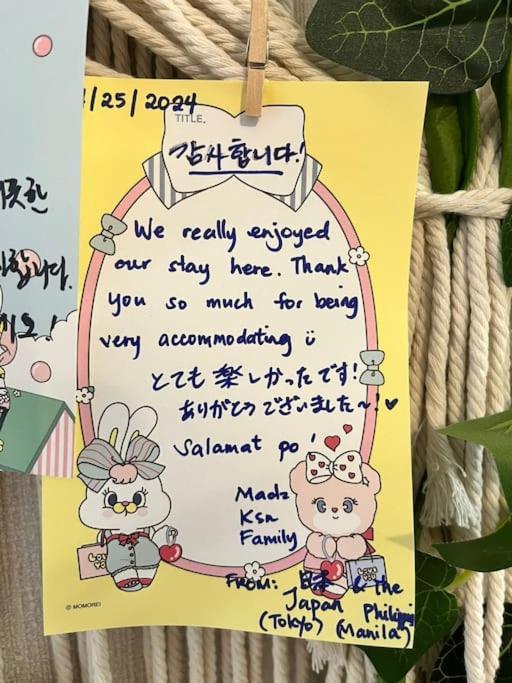 /25/2024
TITLE.
감사합니다!
We really enjoyed
our stay here. Thank
you so much for being
very accommodating ü
とても楽しかったです!
ありがとうございました~!♥
Salamat po!
Madz
Ksn
Family
From: 日本 & the
Japan Philippi
(Tokyo) (Manila)
LOVE YOU
LOVE YOU
© MOMOREI